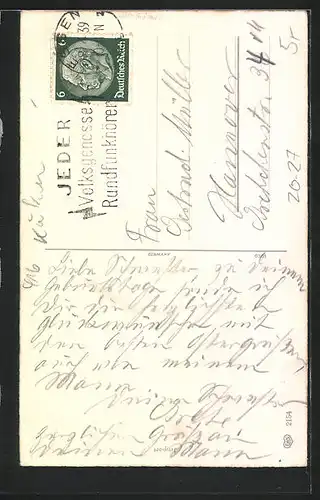 SSEN
39
N
6 Deutsches Reich 6
JEDER
Volksgenosse
Rundfunkhörer
Küken
Frau
Müller
Hannover
34
5r
2027
GERMANY
Liebe Schwester zu Deinem
Geburtstage sende ich
Dir die herzlichsten
Glückwünsche mit
den besten Ostergrüßen
auch von meinem
Mann
Deine Schwester
Grete
herzlichen Gruß an
Deinen Mann.
2154